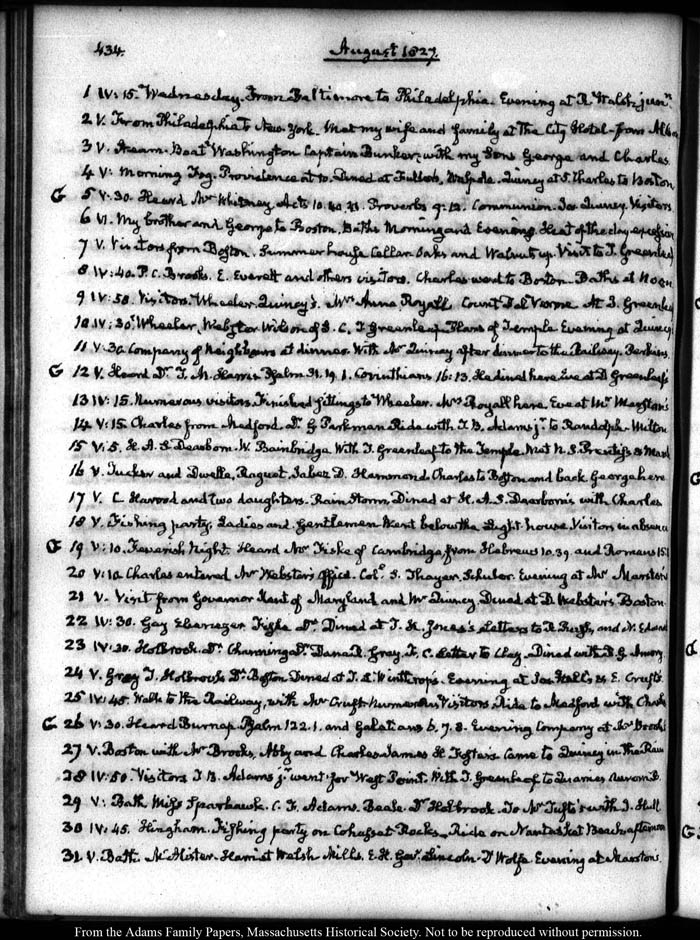 434. August 1827.
1 IV:15. Wednesday. From Baltimore to Philadelphia. Evening at R. Walsh junr.
2 V. From Philadelphia to New-York. Met my wife and family at the City Hotel- from
3 V. Steam-Boat Washington Captain Bunker, with my Sons George and Charles
4 V: Morning Fog. Providence at 10. Dined at Fuller's, Walpole. Quincy at 5. Charles to Boston
G 5 V:30. Heard Mr Whitney, Acts 10. Proverbs 9:12. Communion. Jos. Quincy. Visitors
6 VI. My brother and George to Boston. Baths Morning and Evening. Heat of the day oppressive
7 V. Visitors from Boston. Summer house Cellar Oaks and Walnut up. Visit to T. Greenleaf
8 IV:40. P. C. Brooks. E. Everett and others visitors. Charles went to Boston. Baths at Noon
9 IV:50. Visitors. Wheeler, Quincy's. Mrs Anne Royall Count Del Verme. At T. Greenleaf
10 IV:30. Wheeler, Webster Wilson of S. C. T. Greenleaf. Plans of Temple Evening at Quincy
11 V:30. Company of Neighbours at dinner. With Mr Quincy after dinner to the Railway. Perkins
G 12 V. Heard Dr T. M. Harris Psalm 1. Corinthians 16:13. He dined here. Eve at D Greenleaf's
13 IV:15. Numerous visitors. Finished sittings to Wheeler. Mrs Royall here. Eve at Mr Marston's
14 V:15. Charles from Medford. Dr G Parkman Ride with T. B. Adams jr to Randolph- Milton
15 V:5. H. A. S. Dearborn. W. Bainbridge. With T. Greenleaf to the Temple. Met N. S. Prentiss
16 V. Tucker and Dwelle, Raguet, Jabez D. Hammond. Charles to Boston and back. George here
17 V. C. Harwood and two daughters. Rain Storm. Dined at H. A. S. Dearborn's with Charles
18 V. Fishing party. Ladies and Gentlemen Went below the Light-house. Visitors in absence
G 19 V:10. Feverish Night. Heard Mr Fiske of Cambridge, from Hebrews 10.39. and Romans
20 V:10 Charles entered Mr Webster's Office. Col. S. Thayer, Schuber. Evening at Mr Marston's
21 V. Visit from Governor Kent of Maryland and Mr Quincy. Dined at D. Webster's. Boston
22 IV:30. Gay Ebenezer Fiske Dr. Dined at T. K. Jones's Letters to R. Rush, and N.
23 IV:20. Holbrook. Dr Channing. Dana R. Gray, F. C. Letter to Clay. Dined with
24 V. Gray J. Holbrook Dr Boston Dined at T. L. Winthrop's. Evening at Jos. Hall's & E. Crufts.
25 IV:45. Walk to the Railway, with Mr Cruft. Numerous Visitors. Ride to Medford with Charles
G 26 V:30. Heard Burnap. Psalm 122. 1. and Galatians 6. 7. 8. Evening Company at Mr Brooks's
27 V. Boston with Mr Brooks, Abby and Charles James H. Foster's Came to Quincy in the Rain
28 IV:50. Visitors T. B. Adams jr went for West Point. With T. Greenleaf to Quarries
29 V: Bath. Miss Sparhawk. C. F. Adams. Beale. Dr Holbrook. To Mr Tuft's with J. Hull
30 IV:45. Hingham. Fishing party on Cohasset Rocks. Ride on Nantasket Beach afternoon
31 V. Bath. McAlister. Harriet Welsh Mills. E. H. Govr Lincoln. D Wolfe Evening at Marston's.
From the Adams Family Papers, Massachusetts Historical Society. Not to be reproduced without permission.